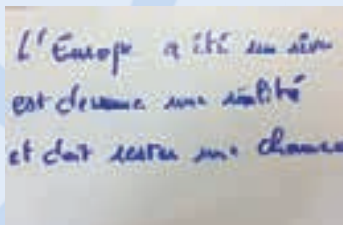 L'Europe a été un rêve
est devenue une réalité
et doit rester une chance